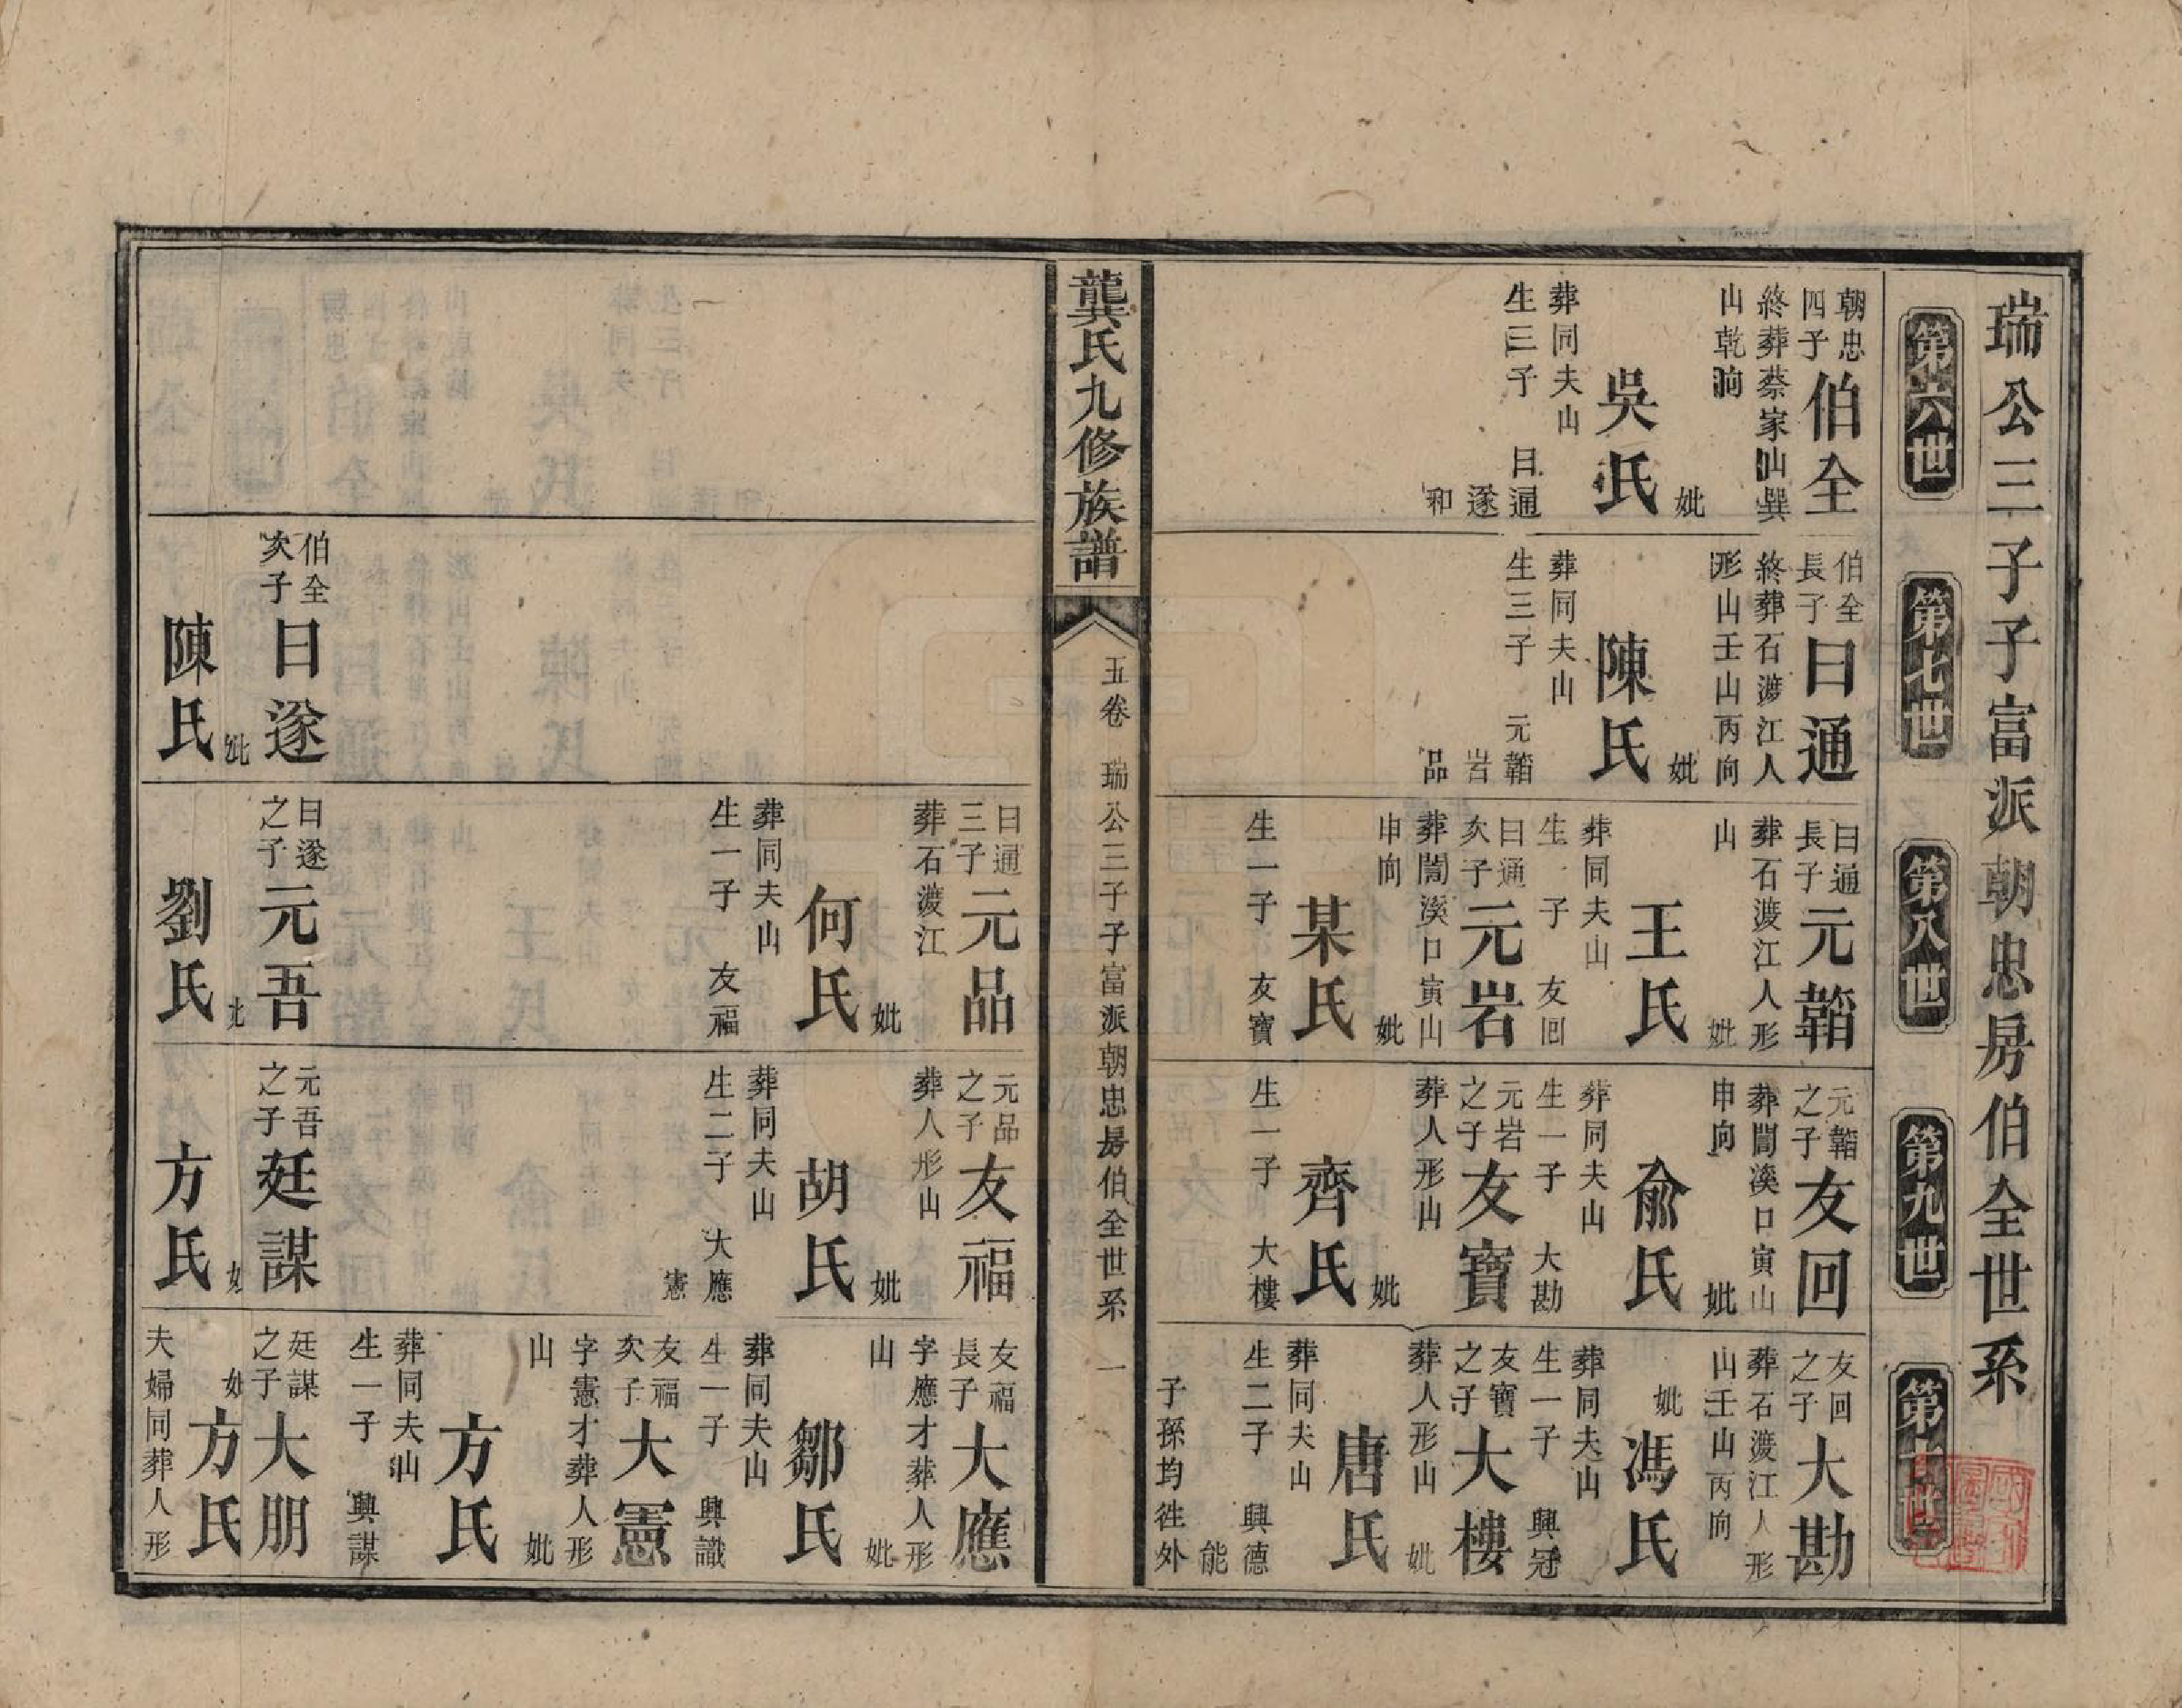 瑞公三子子富派朝忠房伯全世系
第六世
朝忠
四子
伯全
終葬蔡家山巽
山乾向
妣
吳氏
葬同夫山
生三子 曰通
遂
和
第七世
伯全
長子
曰通
終葬石渡江人
形山壬山丙向
妣
陳氏
葬同夫山
生三子 元韜
岩
品
第八世
曰通
長子
元韜
葬石渡江人形
山
妣
王氏
葬同夫山
生一子 友回
曰通
次子
元岩
葬閭溪口寅山
申向
妣
某氏
生一子 友寶
第九世
元韜
之子
友回
葬閭溪口寅山
申向
妣
俞氏
葬同夫山
生一子 大勘
元岩
之子
友寶
葬人形山
妣
齊氏
生一子 大樓
第十世
友回
之子
大勘
葬石渡江人形
山壬山丙向
妣
馮氏
葬同夫山
生一子 興冠
友寶
之子
大樓
葬人形山
妣
唐氏
葬同夫山
生二子 興德
能
子孫均徃外
龔氏九修族譜
五卷 瑞公三子子富派朝忠房伯全世系 一
伯全
次子
曰遂
妣
陳氏
曰通
三子
元品
葬石渡江
妣
何氏
葬同夫山
生一子 友福
曰遂
之子
元吾
劉氏
元品
之子
友福
葬人形山
妣
胡氏
葬同夫山
生二子 大應
憲
元吾
之子
廷謀
方氏
友福
長子
大應
字應才葬人形
山
妣
鄒氏
葬同夫山
生一子 興識
友福
次子
大憲
字憲才葬人形
山
妣
方氏
葬同夫山
生一子 興謀
廷謀
之子
大朋
方氏
夫婦同葬人形